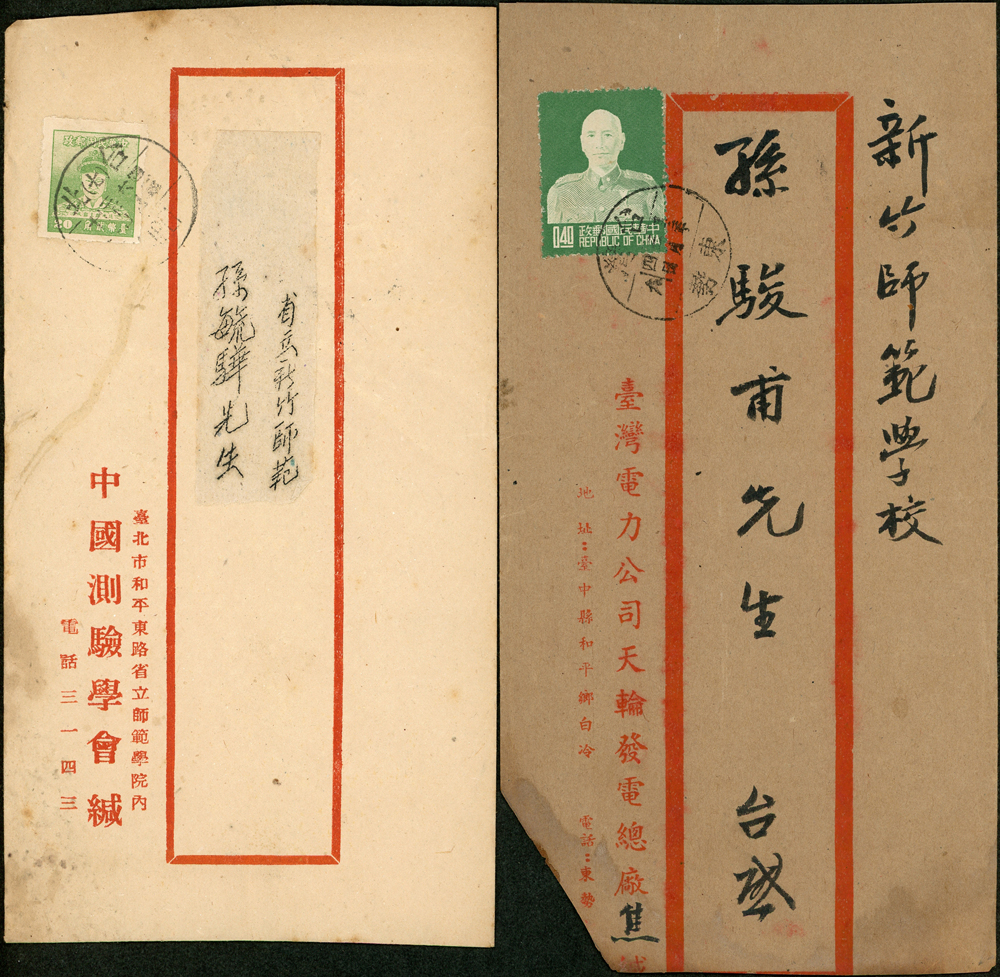 省立新竹師範
孫毓驊先生
臺北市和平東路省立師範學院內
中國測驗學會緘
電話三一四三
新竹師範學校
孫駿甫先生 台啟
臺灣電力公司天輪發電總廠焦緘
地址:臺中縣和平鄉白冷 電話:東勢
政郵國民華中
REPUBLIC OF CHINA
0.40
東勢